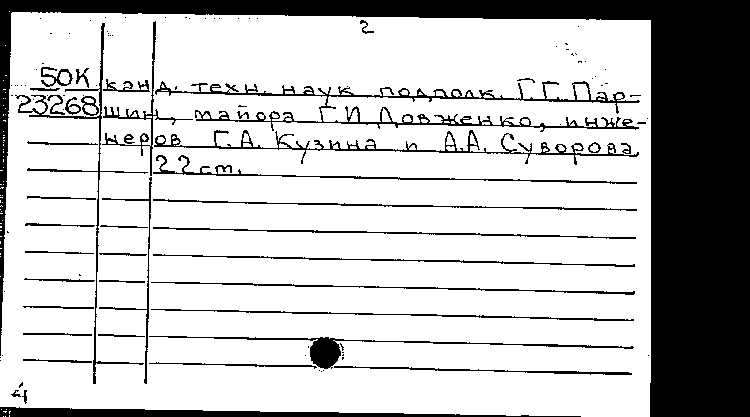 2
50К канд. техн. наук подполк. Г.Г. Пар-
23268 шин, майора Г.И. Довженко, инже-
неров Г.А. Кузина и А.А. Суворова
22 cm.
4